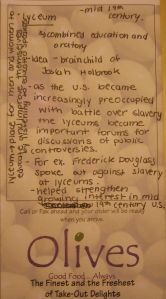 lyceum
-mid 19th century.
combined education and oratory
idea - brainchild of Josiah Holbrook
-as the U.S. became increasingly preoccupied with battle over slavery the lyceums became important forums for discussions of public controversies.
- For ex. Frederick Douglass spoke out against slavery at lyceums.
-helped strengthen growing interest in mid 19th century U.S.
lyceum = place for men and women to
educate
by listening to educated speakers
Call or Fax ahead and your order will be ready
when you arrive.
Olives
Good Food...Always
The Finest and the Freshest
of Take-Out Delights